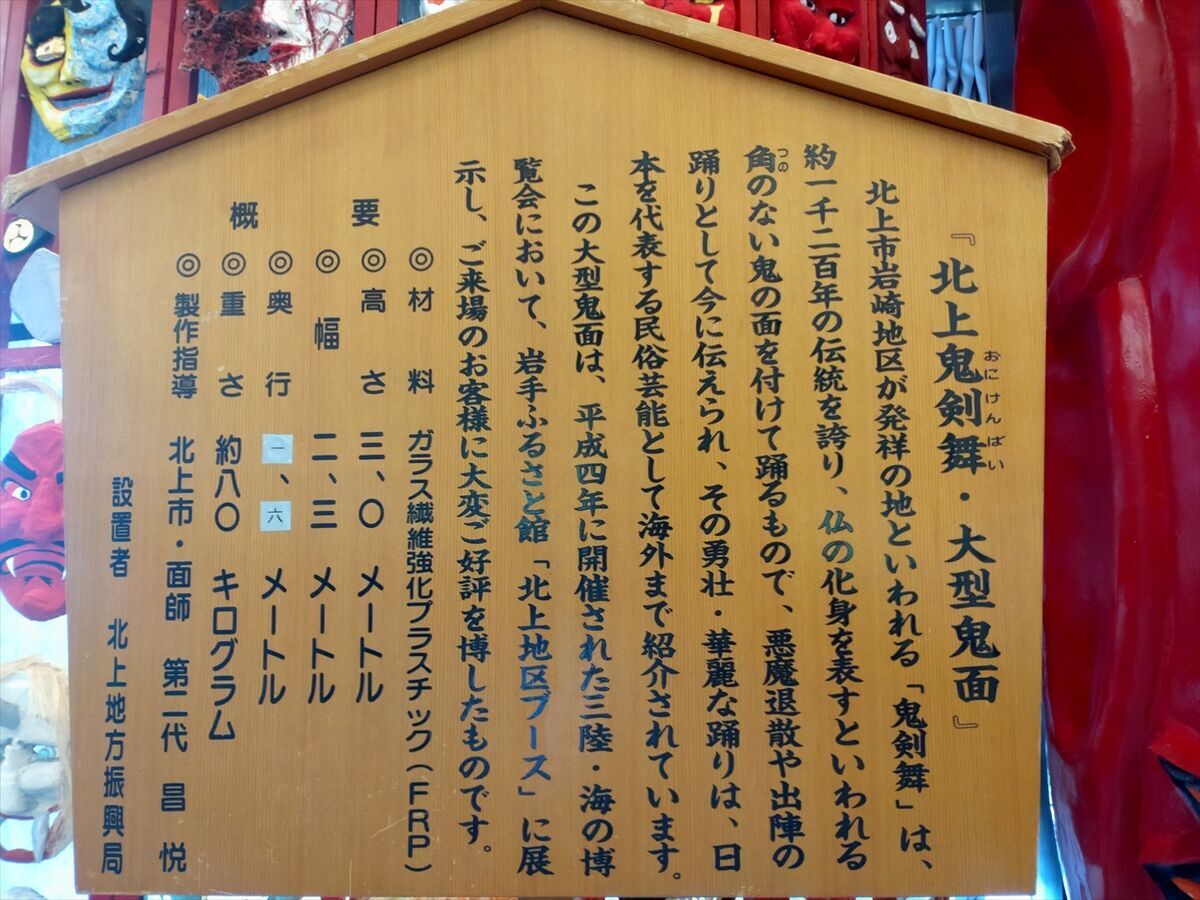 『北上鬼剣舞・大型鬼面』
おにけんばい
北上市岩崎地区が発祥の地といわれる「鬼剣舞」は、
約一千二百年の伝統を誇り、仏の化身を表すといわれる
角のない鬼の面を付けて踊るもので、悪魔退散や出陣の
つの
踊りとして今に伝えられ、その勇壮・華麗な踊りは、日
本を代表する民俗芸能として海外まで紹介されています。
この大型鬼面は、平成四年に開催された三陸・海の博
覧会において、岩手ふるさと館「北上地区ブース」に展
示し、ご来場のお客様に大変ご好評を博したものです。
概要
◎材料 ガラス繊維強化プラスチック（FRP）
◎高さ 三、〇 メートル
◎幅 二、三 メートル
◎奥行 一、六 メートル
◎重さ 約八〇 キログラム
◎製作指導 北上市・面師 第二代 昌悦
設置者 北上地方振興局